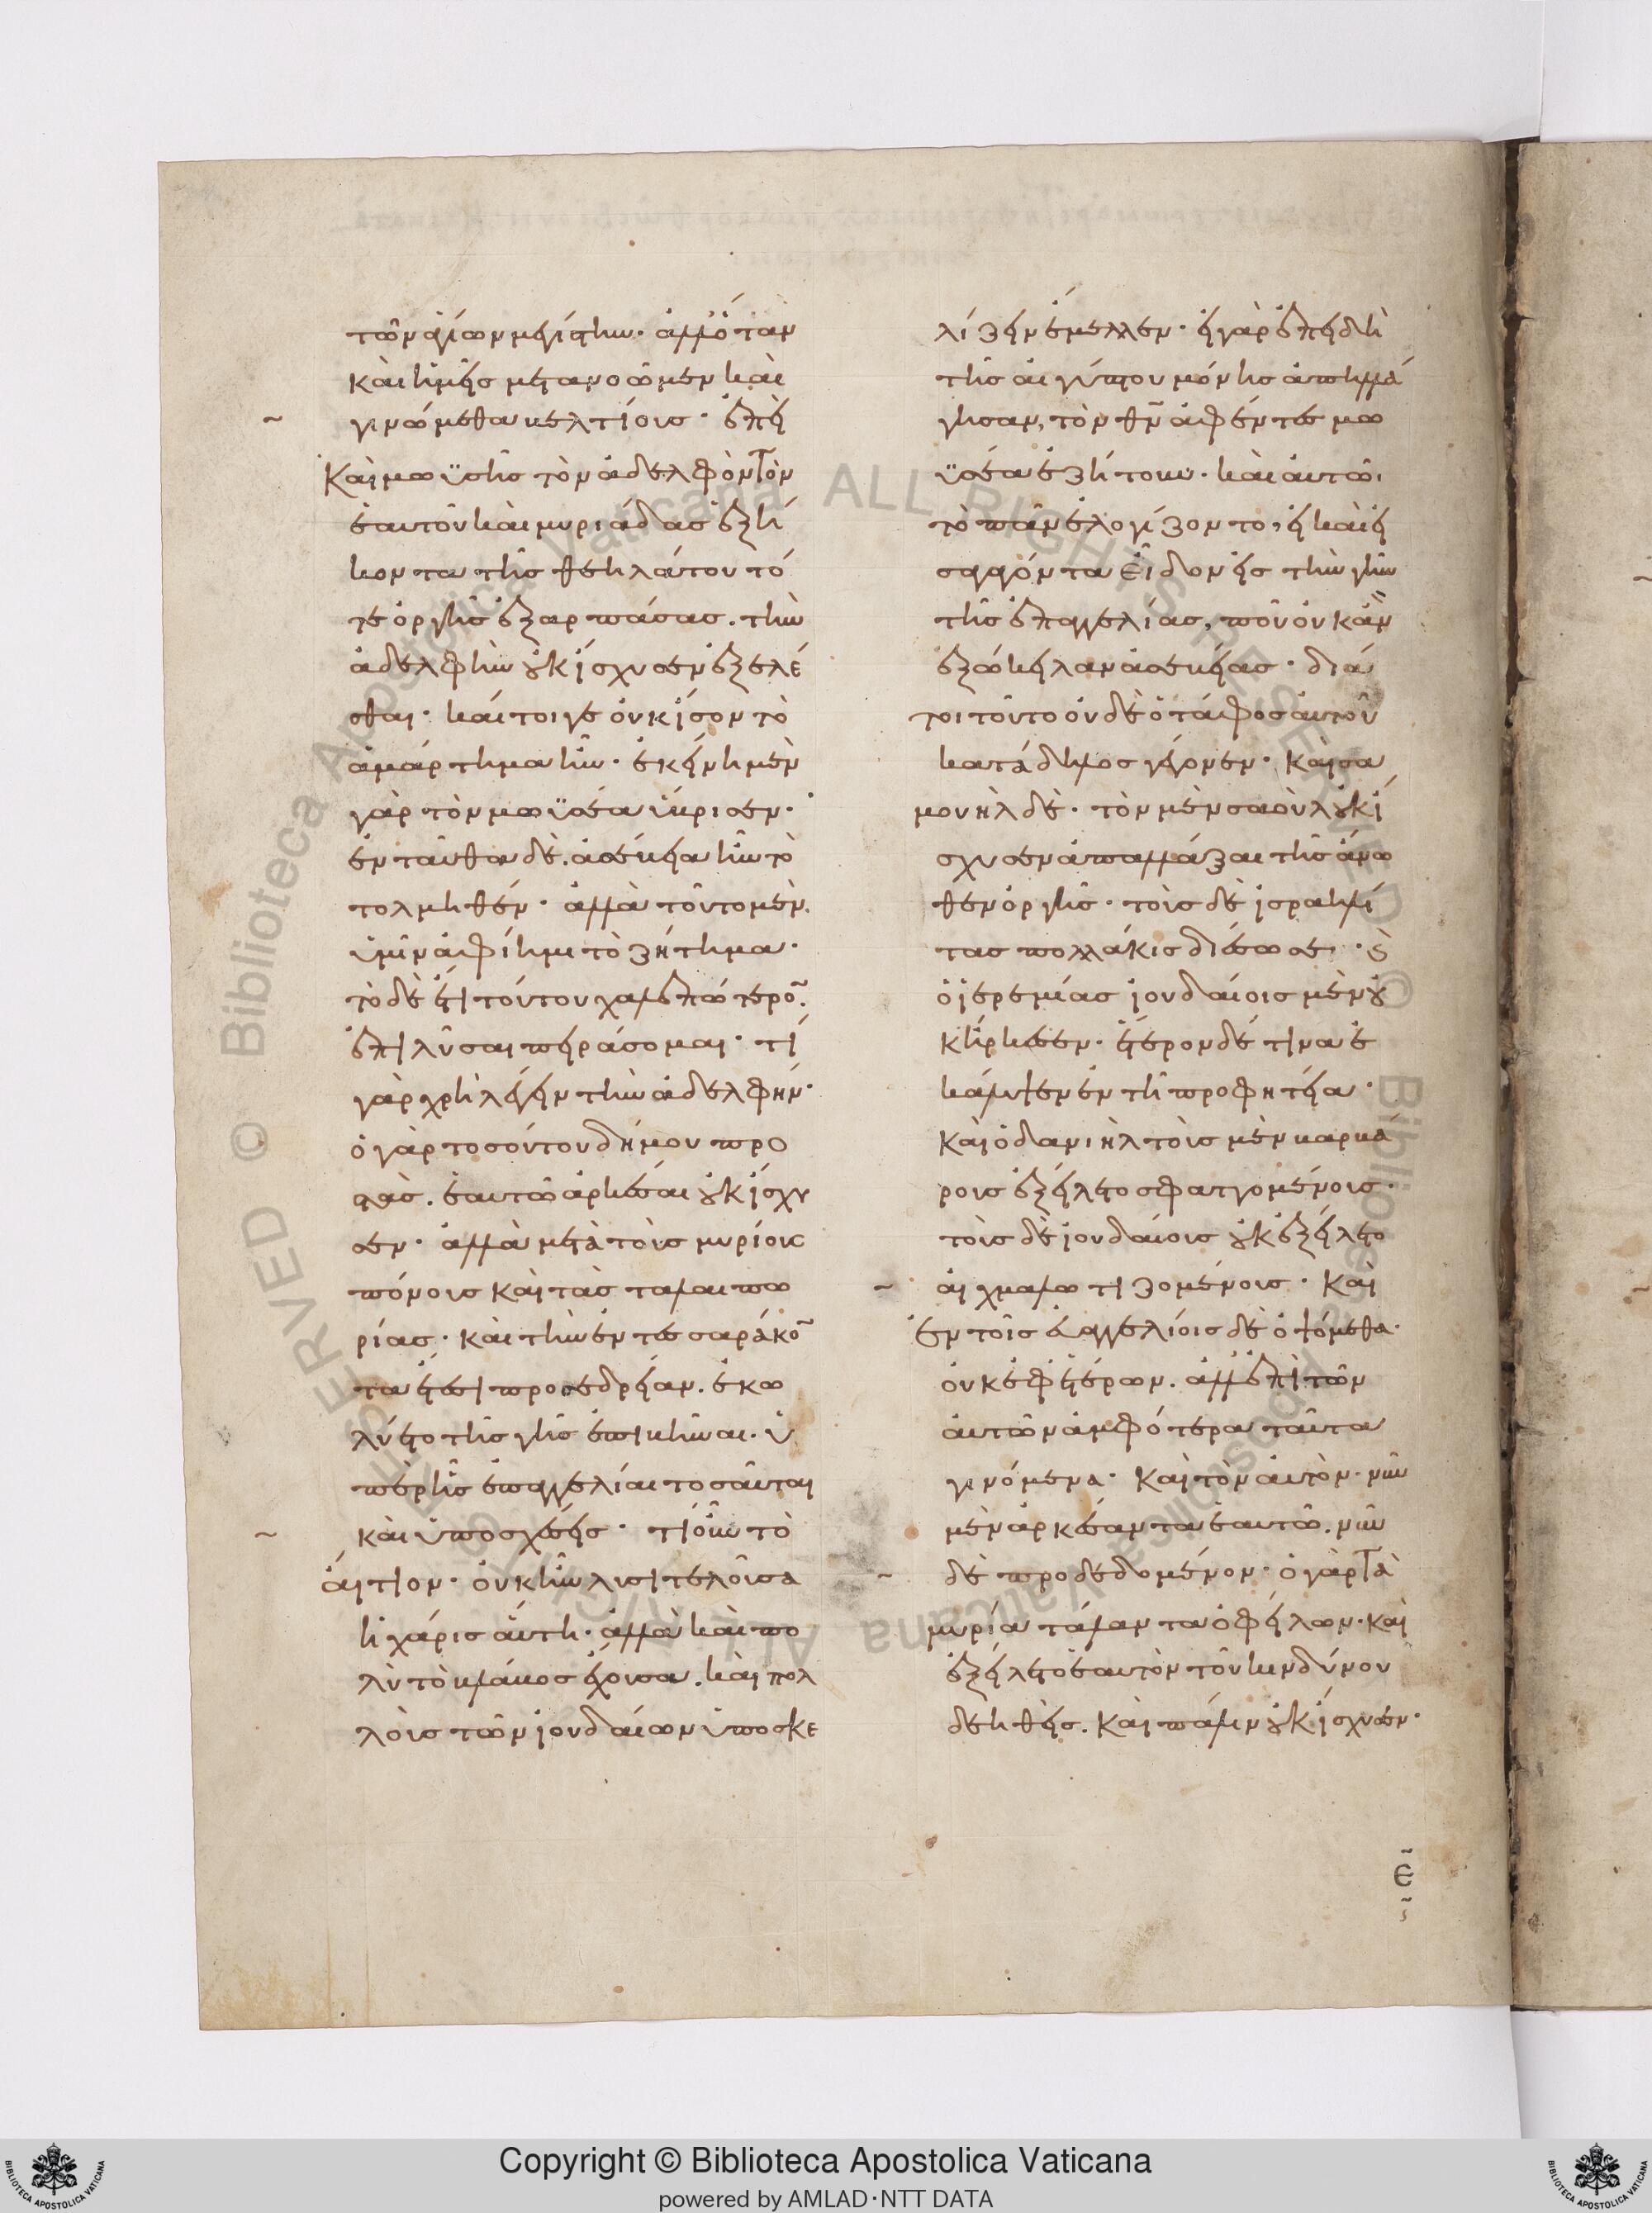 τῶν ἁγίων μεγίστην· ἀλλ' ὅταν
καὶ ἡμεῖς μετανοῶμεν καὶ
γινώμεθα βελτίους· ἐπεὶ
καὶ μωϋσῆς τὸν ἀδελφὸν τὸν
ἑαυτοῦ καὶ μυριάδας ἑξή
κοντα τῆς θεηλάτου τό
τε ὀργῆς ἐξαρπάσας. τὴν
ἀδελφὴν οὐκ ἴσχυσεν ἐξελέ
σθαι· καίτοιγε οὐκ ἴσον τὸ
ἁμάρτημα ἦν· ἐκείνη μὲν
γὰρ τὸν μωϋσέα ὕβρισεν·
ἐνταῦθα δὲ. ἀσέβεια ἦν τὸ
τολμηθέν· ἀλλὰ τοῦτο μὲν
ὑμῖν ἀφίημι τὸ ζήτημα·
τὸ δὲ ἔτι τούτου χαλεπώτερον.
ἐπιλῦσαι πειράσομαι· τί
γὰρ χρὴ λέγειν τὴν ἀδελφήν·
ὁ γὰρ τοσούτου δήμου προ
στὰς. ἑαυτῶ ἀρκέσαι οὐκ ἴσχυ
σεν· ἀλλὰ μετὰ τοὺς μυρίους
πόνους καὶ τὰς ταλαιπω
ρίας· καὶ τὴν ἐν τεσσαράκον
τα ἔτεσι προσεδρείαν. ἐκω
λύετο τῆς γῆς ἐπιβῆναι. ὑ
πὲρ ἧς ἐπαγγελίαι τοσαῦται
καὶ ὑποσχέσεις· τί οὖν τὸ
αἴτιον· οὐκ ἦν λυσιτελοῦσα
ἡ χάρις αὕτη· ἀλλὰ καὶ πο
λὺ τὸ βλάβος ἔχουσα. καὶ πολ
λοὺς τῶν ἰουδαίων ὑποσκε
λίζειν ἔμελλεν· εἰ γὰρ ἐπειδὴ
τῆς αἰγύπτου μόνης ἀπηλλά
γησαν, τὸν θν ἀφέντες μω
ϋσέα ἐζήτουν· καὶ αὐτῶι
τὸ πᾶν ἐλογίζοντο, εἰ καὶ εἰ
σαγαγόντα εἶδον εἰς τὴν γῆν
τῆς ἐπαγγελίας, ποῦ οὐκ ἂν
ἐξώκειλαν ἀσεβείας· διά
τοι τοῦτο οὐδὲ ὁ τάφος αὐτοῦ
κατάδηλος γέγονεν· καὶ σα
μουὴλ δὲ· τὸν μὲν σαοὺλ οὐκ ἴ
σχυσεν ἀπαλλάξαι τῆς ἄνω
θεν ὀργῆς· τοὺς δὲ ἰσραηλί
τας πολλάκις διέσωσε· καὶ
ὁ ἱερεμίας ἰουδαίοις μὲν οὐ
κ ἤρκεσεν· ἕτερον δέ τινα ἐ
κάλυψεν ἐν τῆ προφητεία·
καὶ ὁ δανιὴλ τοὺς μὲν βαρβά
ρους ἐξείλετο σφαττομένους·
τοὺς δὲ ἰουδαίους οὐκ ἐξείλετο
αἰχμαλωτιζομένους· καὶ
ἐν τοῖς εὐαγγελίοις δὲ ὀψόμεθα·
οὐκ ἐφ' ἑτέρων. ἀλλ' ἐπὶ τῶν
αὐτῶν ἀμφότερα ταῦτα
γινόμενα· καὶ τὸν αὐτὸν· νῦν
μὲν ἀρκέσαντα ἑαυτῶ. νῦν
δὲ προδεδομένον· ὁ γὰρ τὰ
μυρία τάλαντα ὀφείλων· καὶ
ἐξείλετο ἑαυτὸν τοῦ κινδύνου
δεηθεὶς. καὶ πάλιν οὐκ ἴσχυσεν·
ε
Copyright © Biblioteca Apostolica Vaticana
powered by AMLAD·NTT DATA